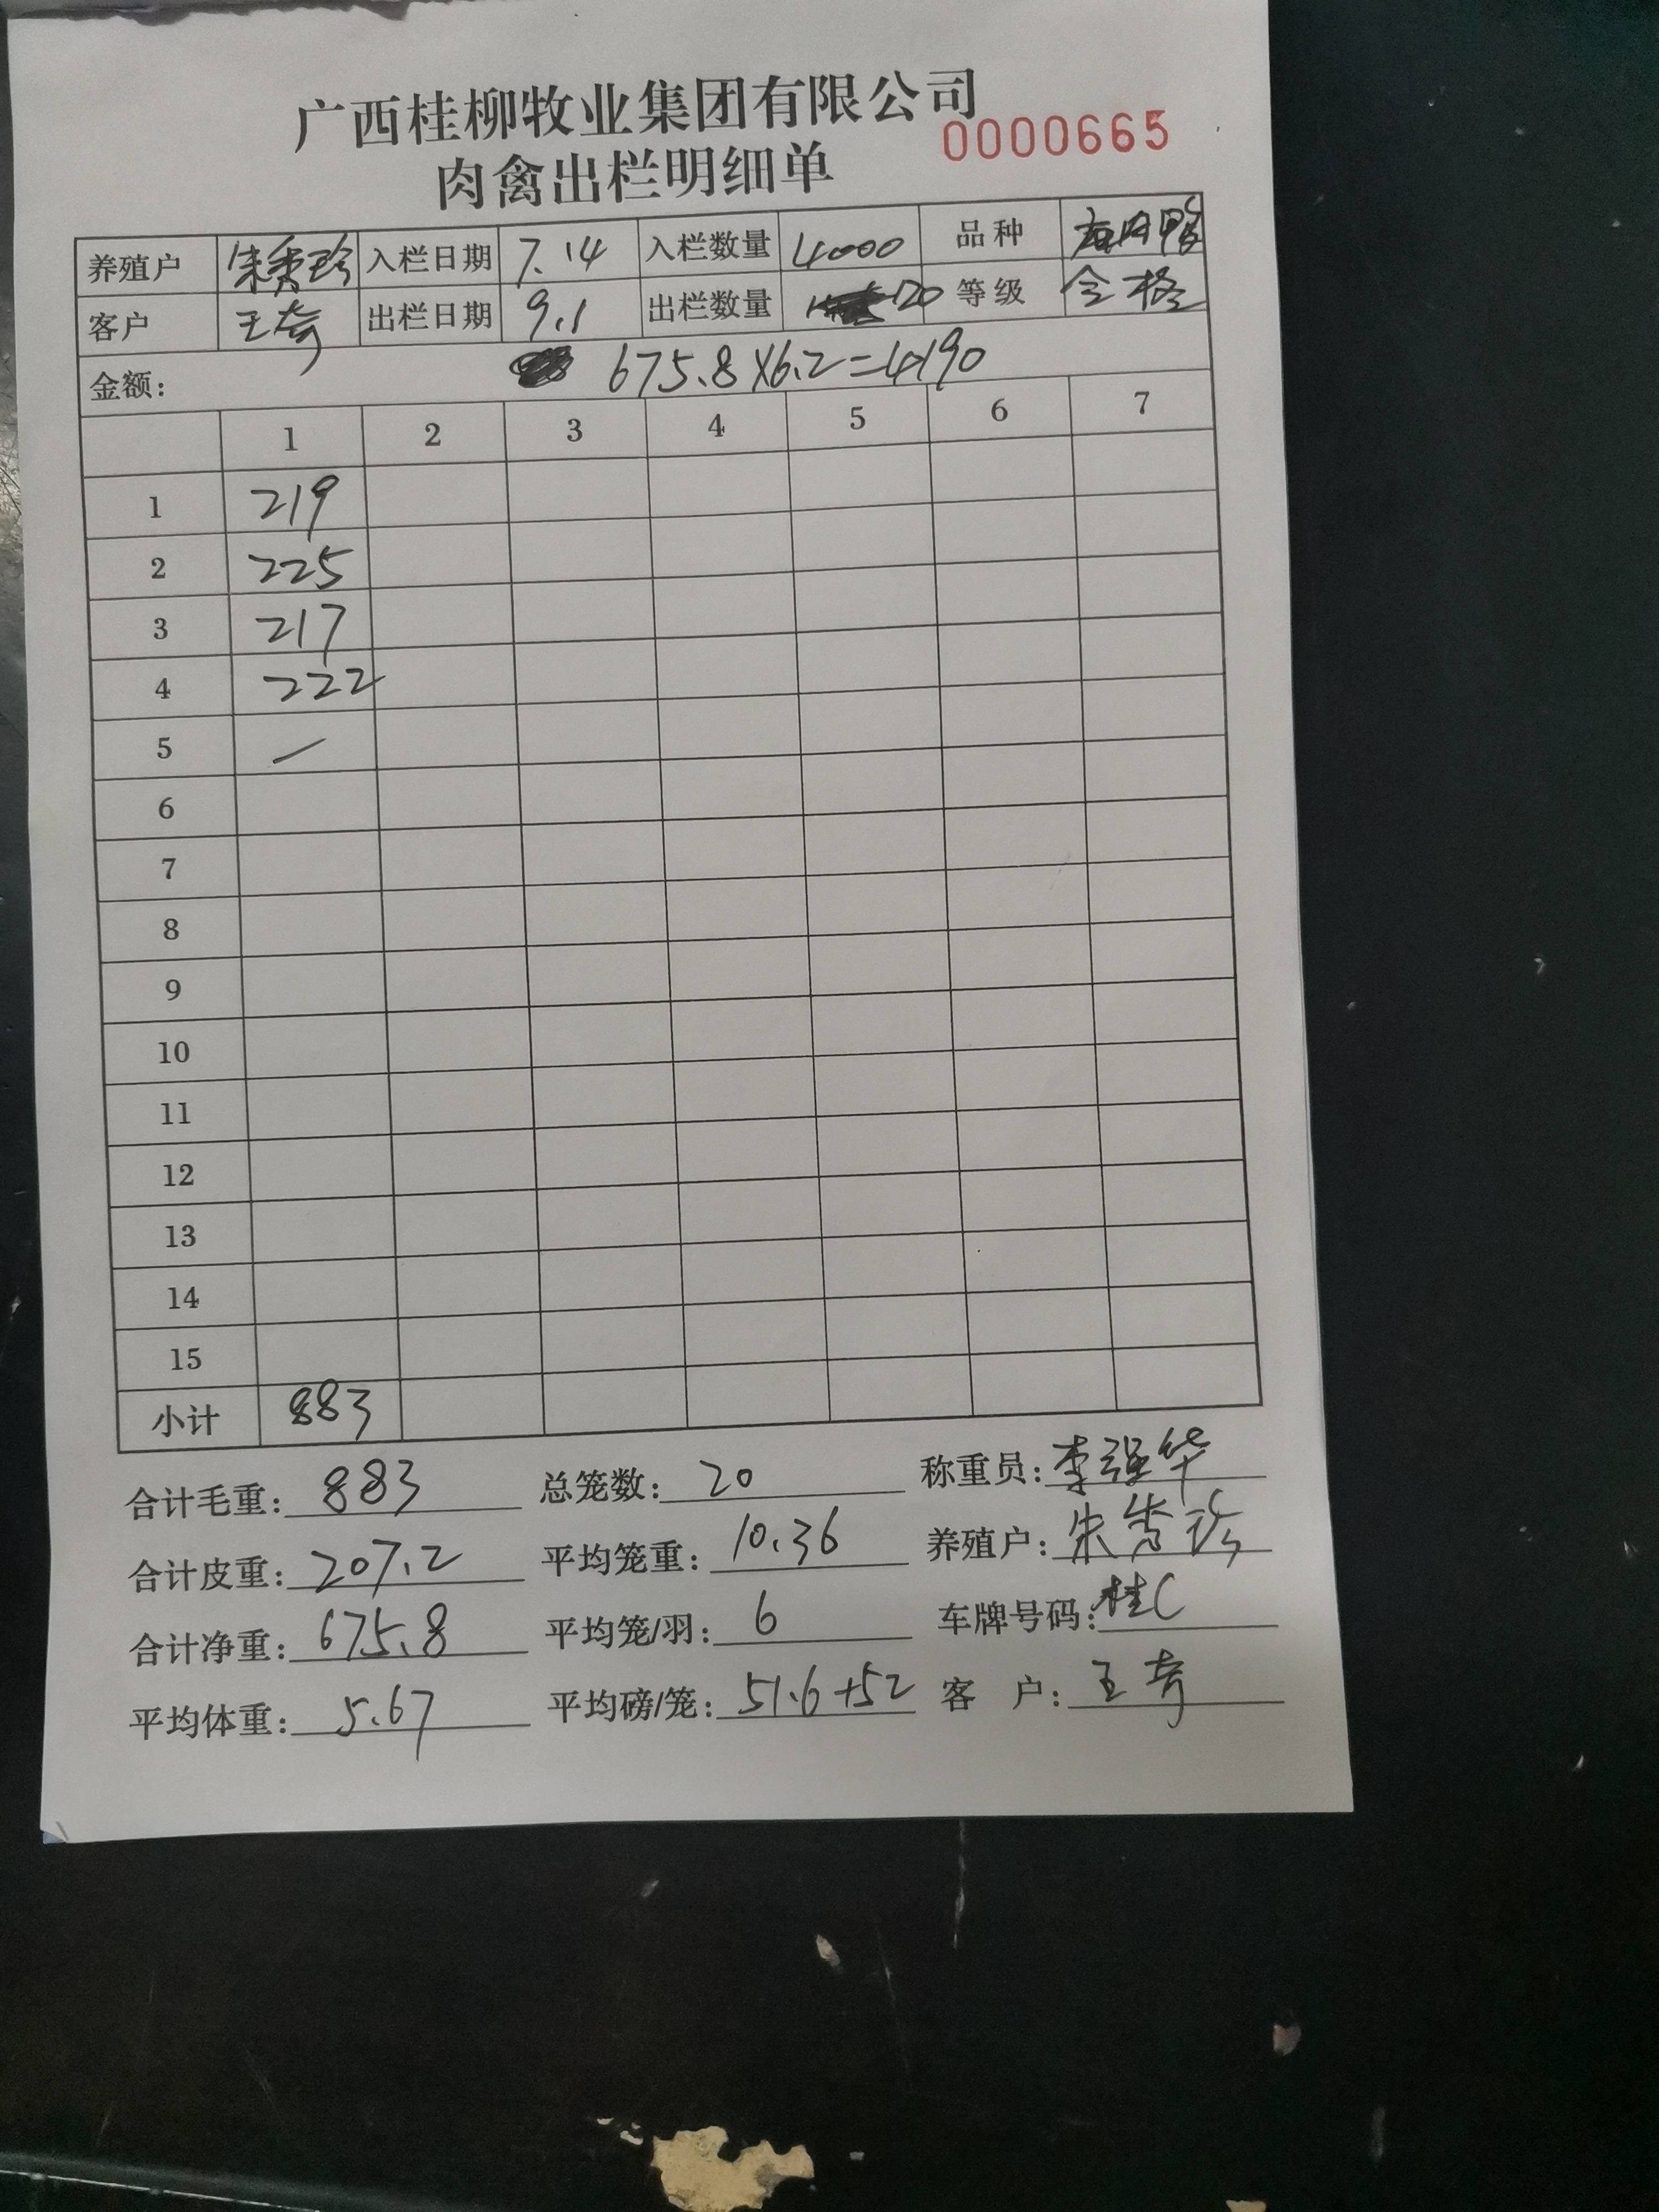 广西桂柳牧业集团有限公司
肉禽出栏明细单 0000665
养殖户 朱秀珍 入栏日期 7.14 入栏数量 4000 品种 鸭
客户 王奇 出栏日期 9.1 出栏数量 120 等级 合格
金额: 675.8×6.2=4190
1 2 3 4 5 6 7
1 219
2 225
3 217
4 222
5 /
6
7
8
9
10
11
12
13
14
15
小计 883
合计毛重: 883 总笼数: 20 称重员: 李强华
合计皮重: 207.2 平均笼重: 10.36 养殖户: 朱秀珍
合计净重: 675.8 平均笼/羽: 6 车牌号码: 桂C
平均体重: 5.67 平均磅/笼: 51.6+52 客 户: 王奇